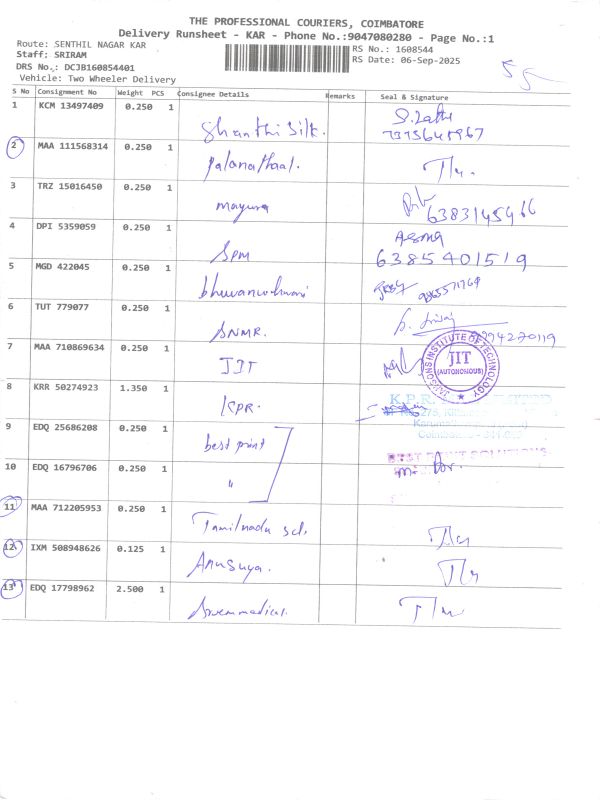 THE PROFESSIONAL COURIERS, COIMBATORE
Delivery Runsheet - KAR - Phone No.:9047080280 - Page No.:1
Route: SENTHIL NAGAR KAR
RS No.: 1608544
Staff: SRIRAM
RS Date: 06-Sep-2025
DRS No.: DCJB160854401
Vehicle: Two Wheeler Delivery
55
S No Consignment No Weight PCS Consignee Details Remarks Seal & Signature
1 KCM 13497409 0.250 1 Shanthi Silk.
2 MAA 111568314 0.250 1
3 TRZ 15016450 0.250 1 mayura
4 DPI 5359059 0.250 1 SPM Asma 6385401519
5 MGD 422045 0.250 1
6 TUT 779077 0.250 1 SNMR.
7 MAA 710869634 0.250 1 JIT
INSTITUTE OF TECHNOLOGY
JIT
(AUTONOMOUS)
8 KRR 50274923 1.350 1 KPR.
K.P.R.
9 EDQ 25686208 0.250 1 best print
BEST PRINT SOLUTIONS
10 EDQ 16796706 0.250 1 "
11 MAA 712205953 0.250 1 Tamilnadu
12 IXM 508948626 0.125 1 Anusuya.
13 EDQ 17798962 2.500 1